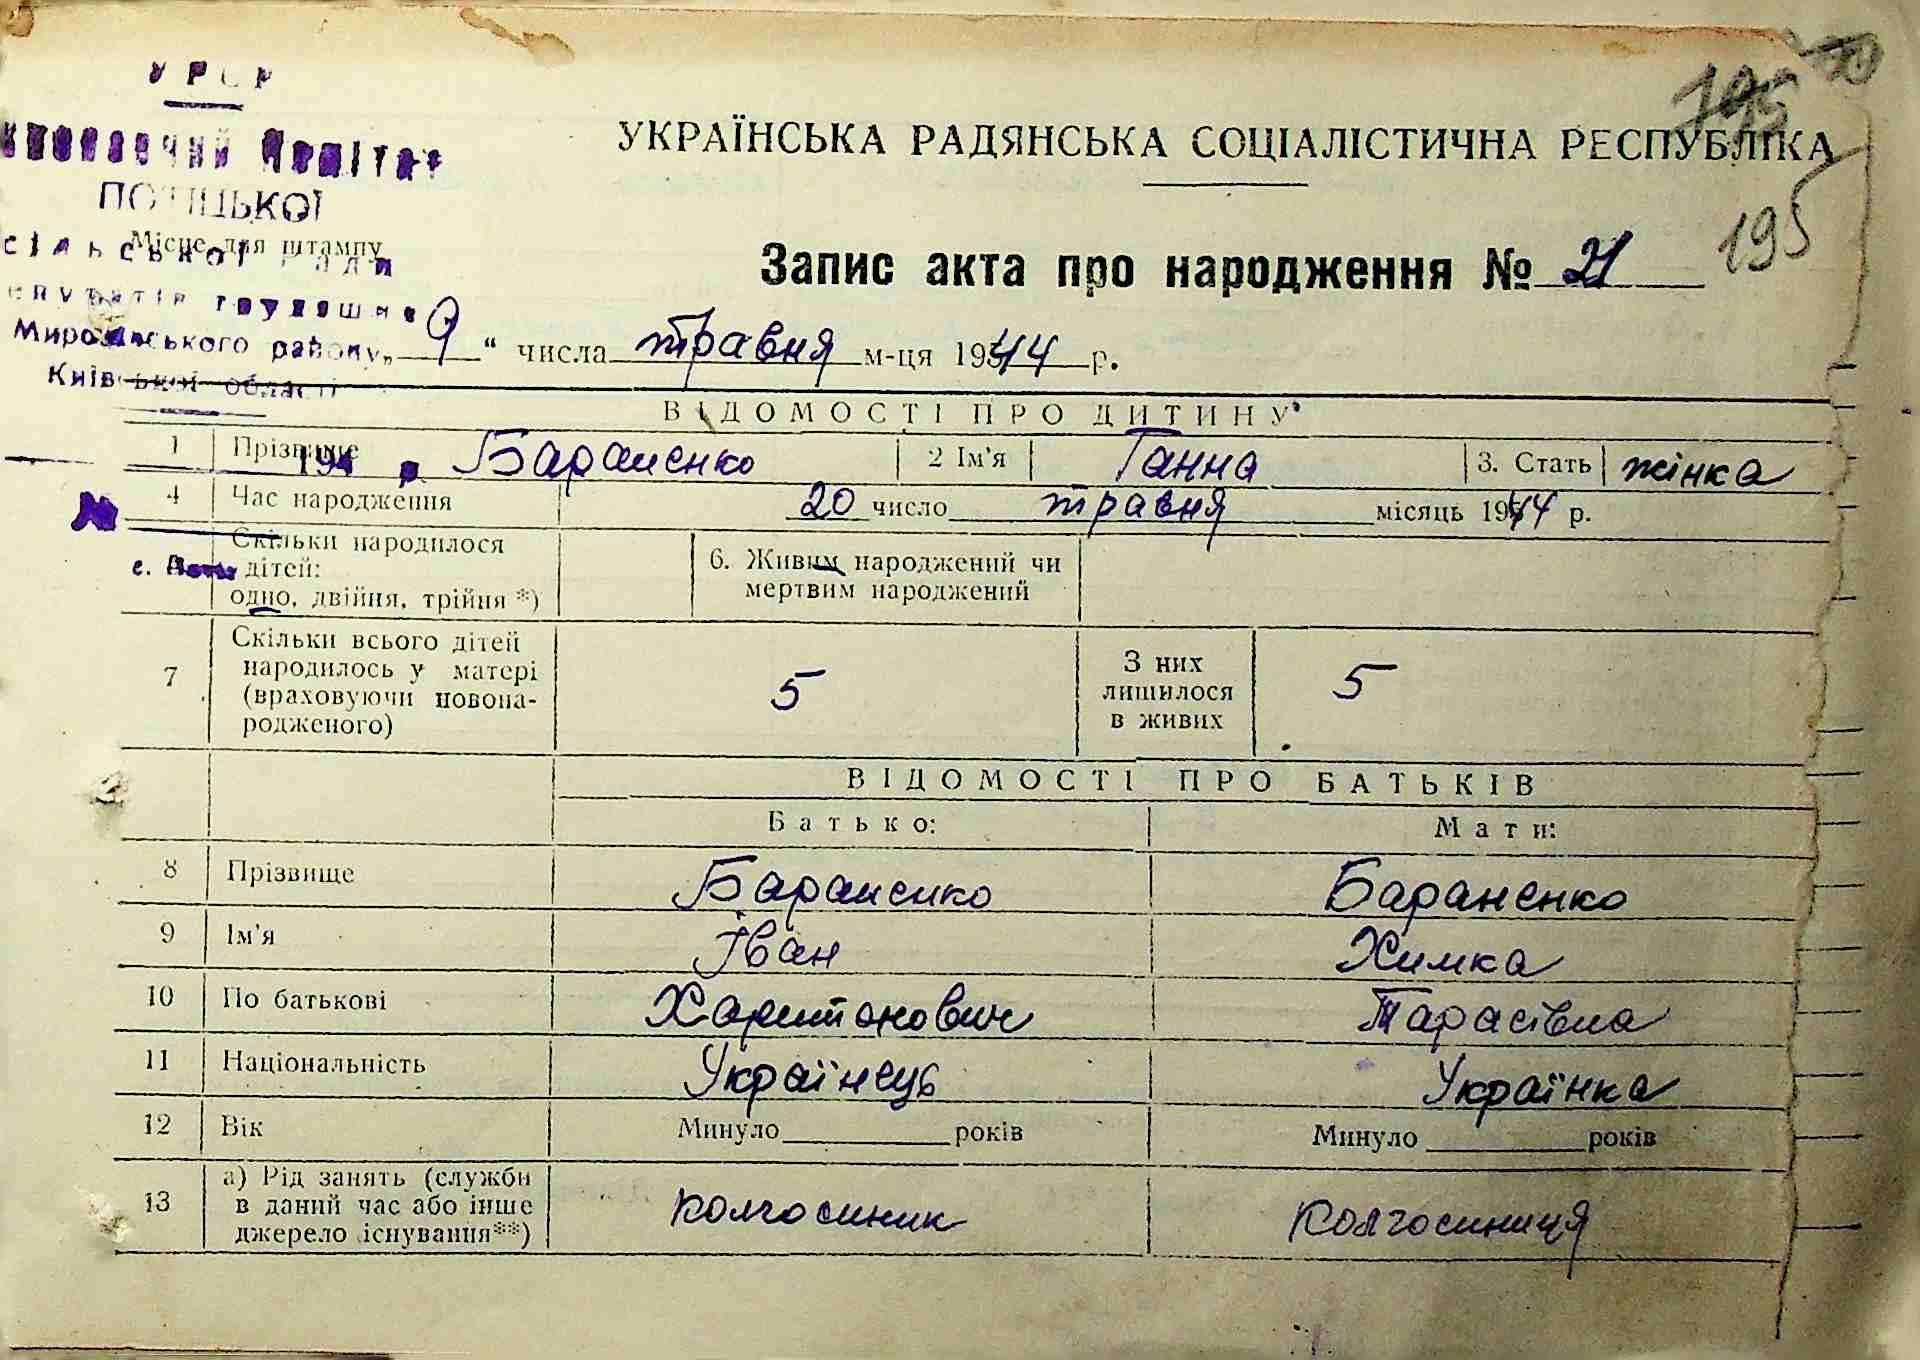 УРСР
195
УКРАЇНСЬКА РАДЯНСЬКА СОЦІАЛІСТИЧНА РЕСПУБЛІКА
Комітет
сільської ради
Місце для штампу
195
Запис акта про народження № 21
Миро району
Київської області
„ 9 “ числа травня м-ця 1944 р.
ВІДОМОСТІ ПРО ДИТИНУ
1 Прізвище Бараненко 2 Ім'я Ганна 3. Стать жінка
194 р
4 Час народження 20 число травня місяць 1944 р.
№
с.
Скільки народилося дітей: одно, двійня, трійня *) 6. Живим народжений чи мертвим народжений
7 Скільки всього дітей народилось у матері (враховуючи новона-родженого) 5 З них лишилося в живих 5
ВІДОМОСТІ ПРО БАТЬКІВ
Батько: Мати:
8 Прізвище Бараненко Бараненко
9 Ім'я Іван Химка
10 По батькові Харитонович Тарасівна
11 Національність Українець Українка
12 Вік Минуло років Минуло років
13 а) Рід занять (служби в даний час або інше джерело існування**) колгоспник колгоспниця